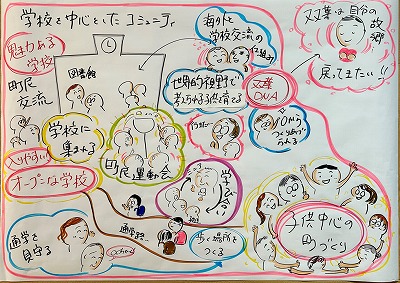 学校を中心としたコミュニティ
魅力ある
学校
町民
交流
図書館
学校に
集まれる
入りやすい
オープンな学校
町民運動会
海外と
学校交流の
世界的視野で
考えられる子供を育てる
双葉
DNA
双葉は自分の
故郷
戻ってきたい!!
0から
つくりあげ
られる
学び合い
通学を
見守る
school
通学路
歩く場所を
つくる
子供中心の
町づくり